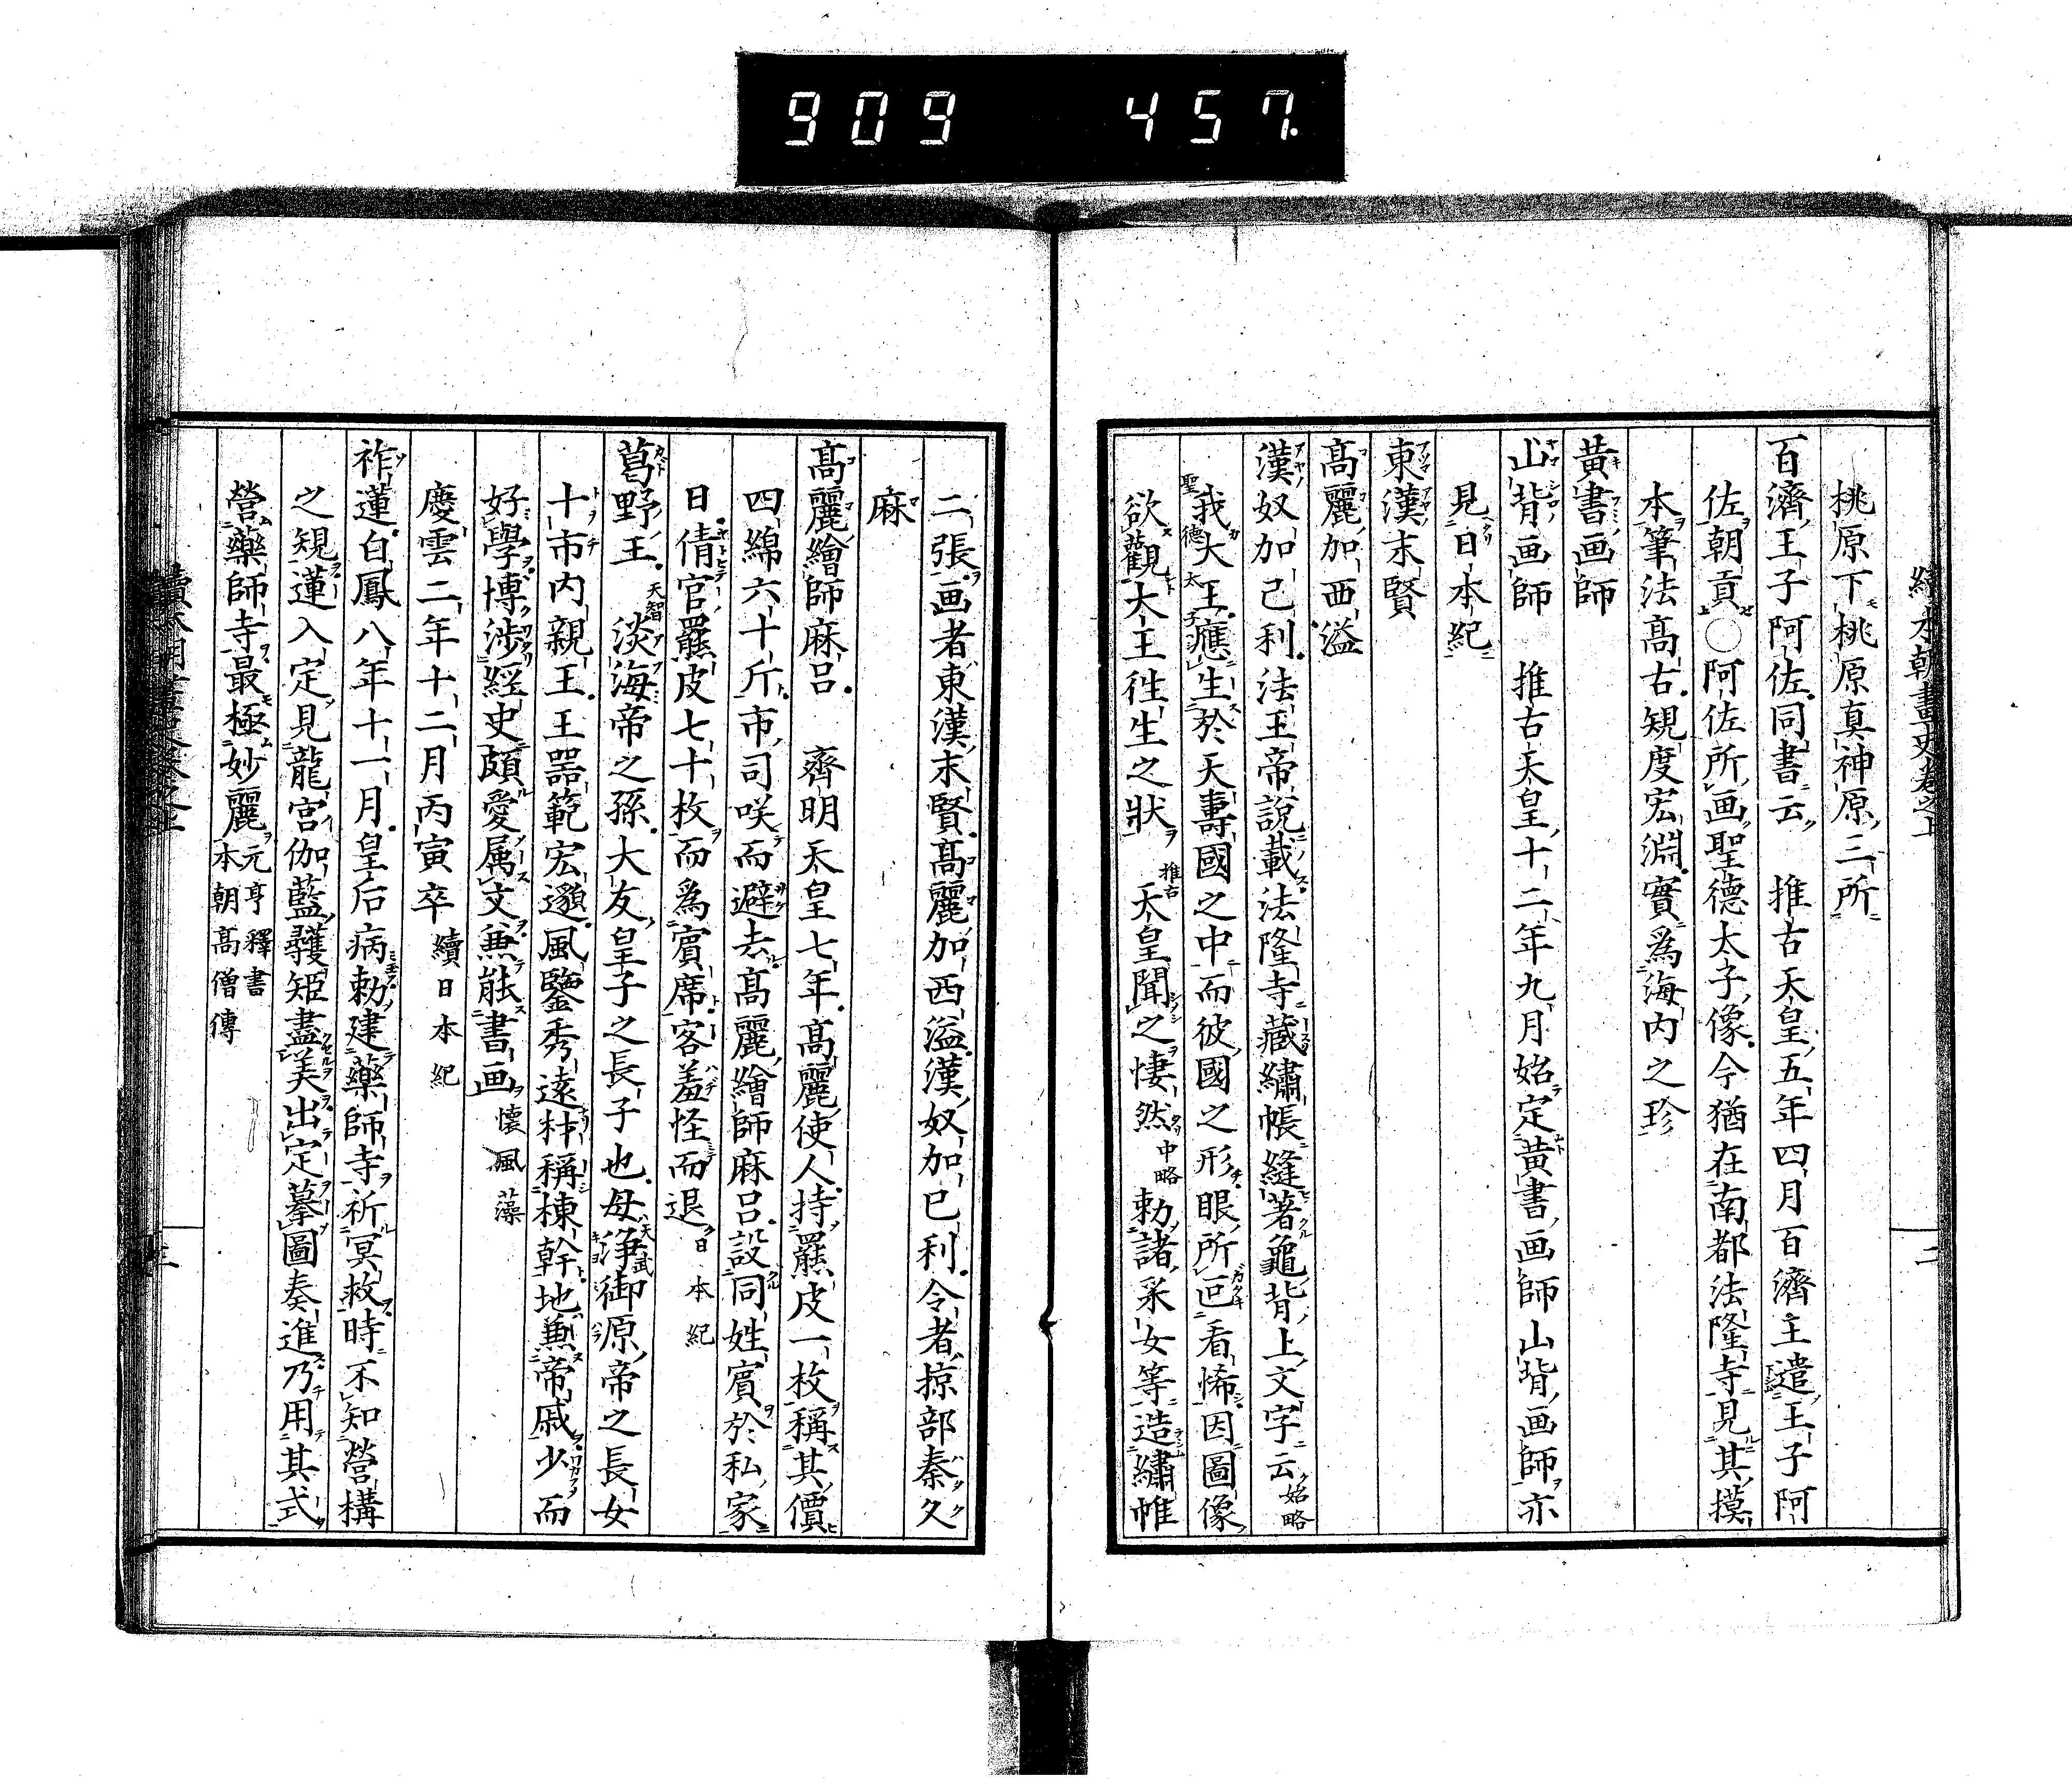 909 457.
續本朝畫史卷之上
二
桃原下桃原真神原三所
百濟王子阿佐同書云 推古天皇五年四月百濟王遣王子阿
佐朝貢○阿佐所画聖德太子像今猶在南都法隆寺見其摸
本筆法髙古規度宏淵實爲海内之珍
黄書画師
山背画師 推古天皇十二年九月始定黄書画師山背画師亦
見日本紀
東漢末賢
髙麗加西溢
漢奴加己利法王帝說載法隆寺藏繡帳縫著龜背上文字云始略
我大王應生於天壽國之中而彼國之形眼所叵看悕因圖像
聖德太子
欲觀大王徃生之狀 推古天皇聞之悽然中略勅諸采女等造繡帷
二張画者東漢末賢髙麗加西溢漢奴加巳利令者掠部秦久
麻
髙麗繪師麻呂 齊明天皇七年髙麗使人持羆皮一枚稱其價
四綿六十斤市司咲而避去髙麗繪師麻呂設同姓賓於私家
日倩官羆皮七十枚而爲賓席客羞怪而退日本紀
葛野王 天智淡海帝之孫大友皇子之長子也母天武浄御原帝之長女
十市内親王王噐範宏邈風鑒秀遠材稱棟幹地兼帝戚少而
好學博涉經史頗愛属文兼能書画懷風藻
慶雲二年十二月丙寅卒續日本紀
祚蓮白鳳八年十一月皇后病勅建藥師寺祈冥救時不知營構
之規蓮入定見龍宮伽藍尋矩盡美出定摹圖奏進乃用其式
營藥師寺最極妙麗元亨釋書
本朝髙僧傳
續本朝畫史卷之上
三